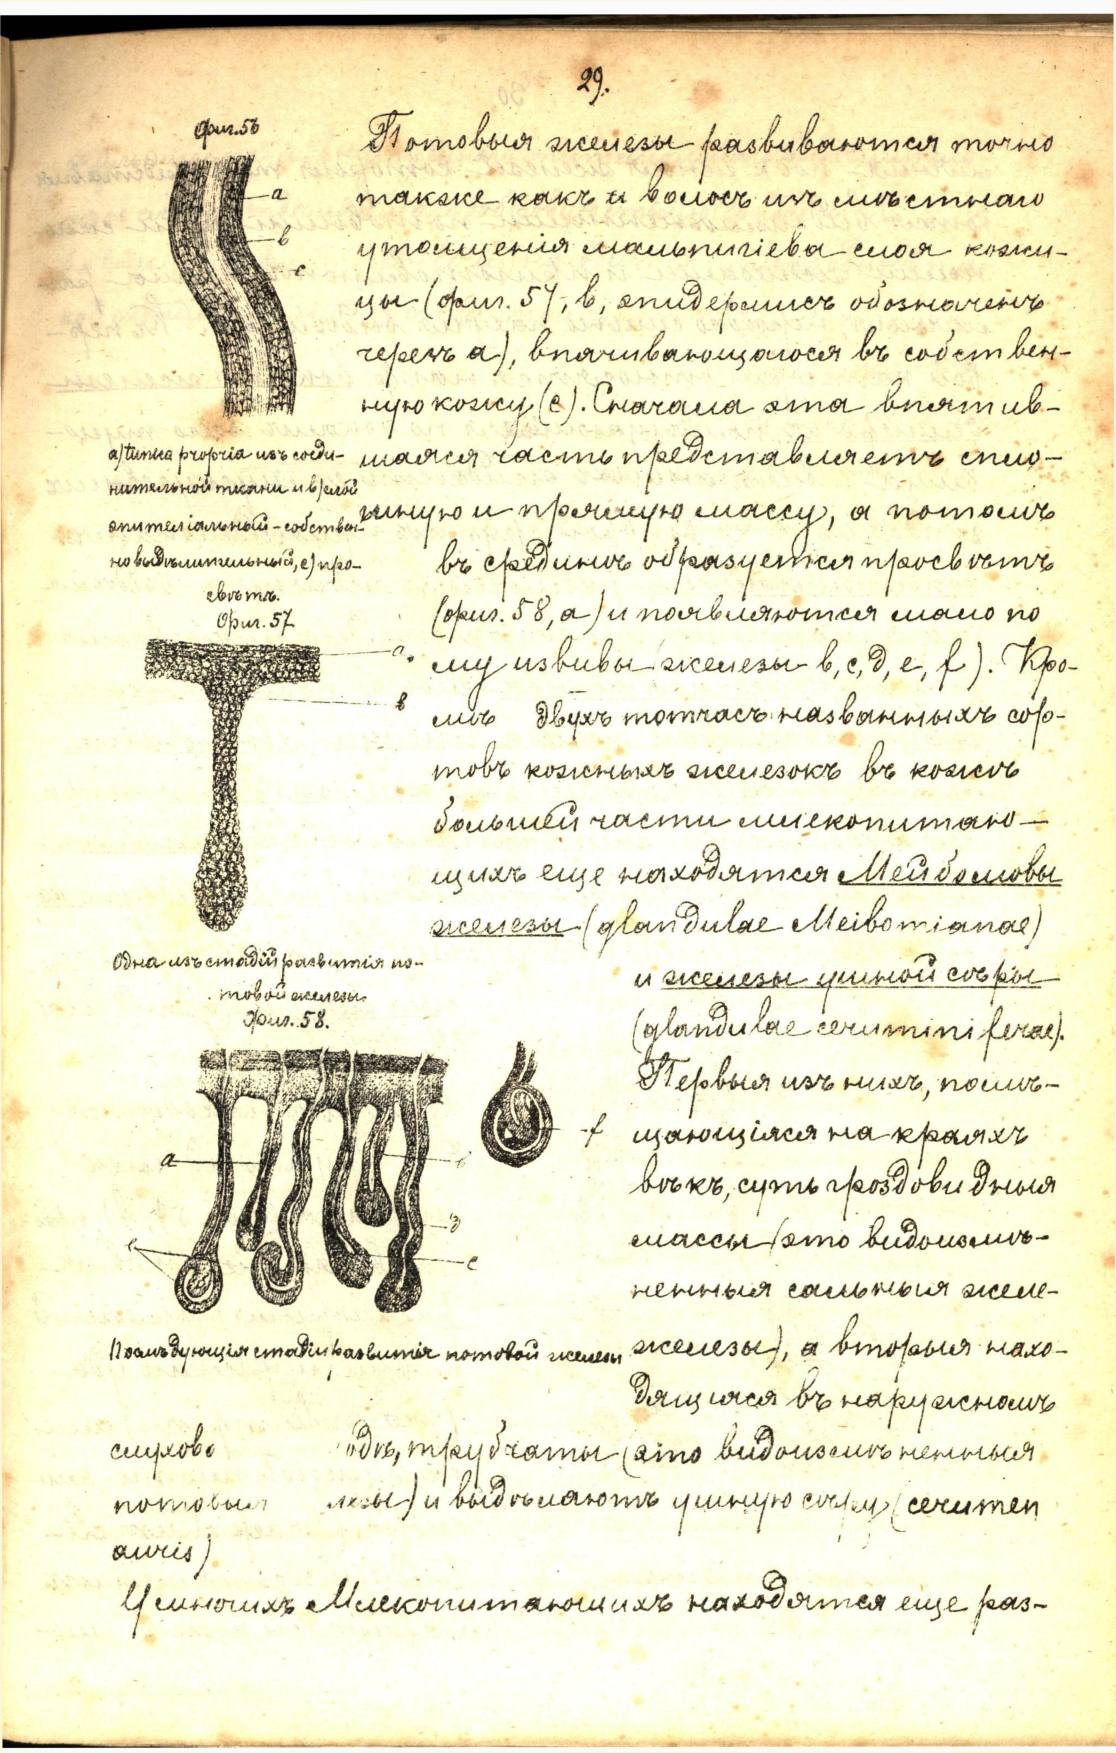 29.
Фиг. 56
а
в
с
а) tunica propria изъ соеди-
нительной ткани и в) слой
эпителіальный - собствен-
но выдѣлительный, с) про-
свѣтъ.
Фиг. 57
а.
в
Одна изъ стадій развитія по-
товой железы
Фиг. 58.
а
в
д
с
е
f
Послѣдующія стадіи развитія потовой железы
Потовыя железы развиваются точно
также какъ и волосъ изъ мѣстнаго
утолщенія мальпигіева слоя кожи-
цы (фиг. 57, в, эпидермисъ обозначенъ
черезъ а), впячивающагося въ собствен-
ную кожу (с). Сначала эта впятив-
шаяся часть представляетъ спло-
шную и прямую массу, а потомъ
въ срединѣ образуется просвѣтъ
(фиг. 58, а) и появляются мало по
му извивы железы в, с, д, е, f). Кро-
мѣ двухъ тотчасъ названныхъ сор-
товъ кожныхъ железокъ въ кожѣ
большей части млекопитаю-
щихъ еще находятся Мейбомовы
железы (glandulae Meibomianae)
и железы ушной сѣры
(glandulae ceruminiferae).
Первыя изъ нихъ, помѣ-
щающіяся на краяхъ
вѣкъ, суть гроздовидныя
массы (это видоизмѣ-
ненныя сальныя желе-
железы), а вторыя нахо-
дящіяся въ наружномъ
слухово одѣ, трубчаты (это видоизмѣненныя
потовыя лезы) и выдѣляютъ ушную сѣру (cerumen
auris)
У многихъ Млекопитающихъ находятся еще раз-